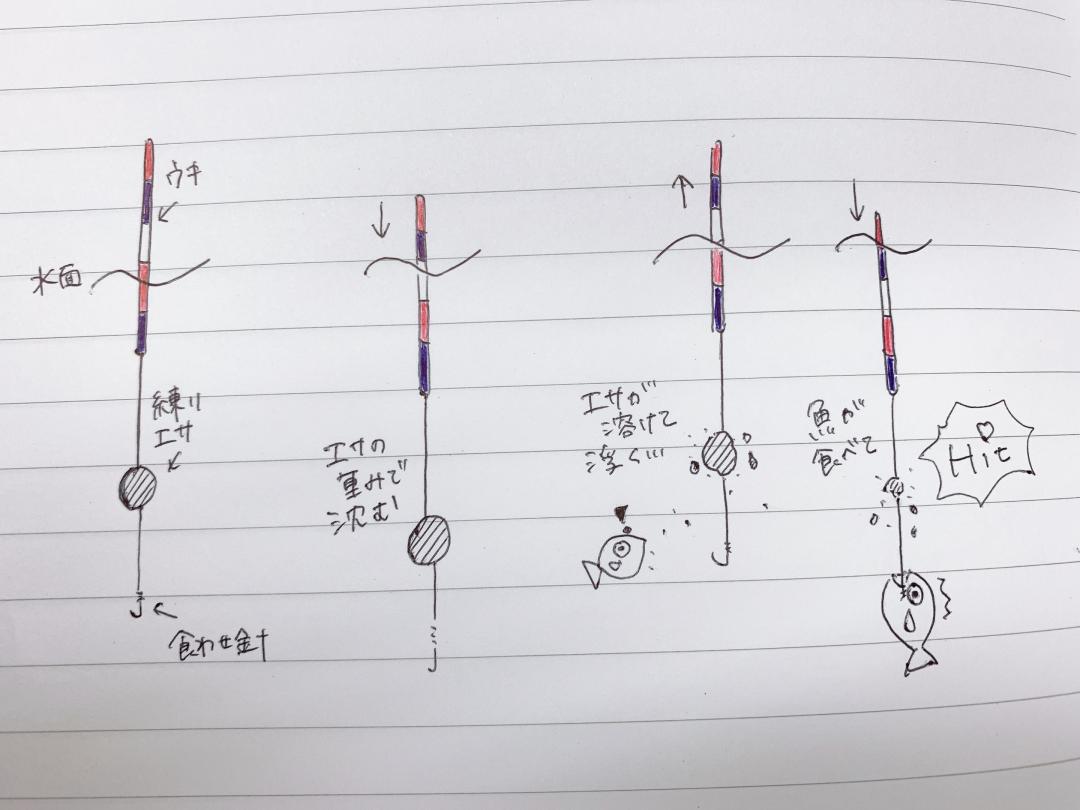 ウキ
水面
練り
エサ
食わせ針
エサの
重みで
沈む
エサが
溶けて
浮く
魚が
食べて
Hit